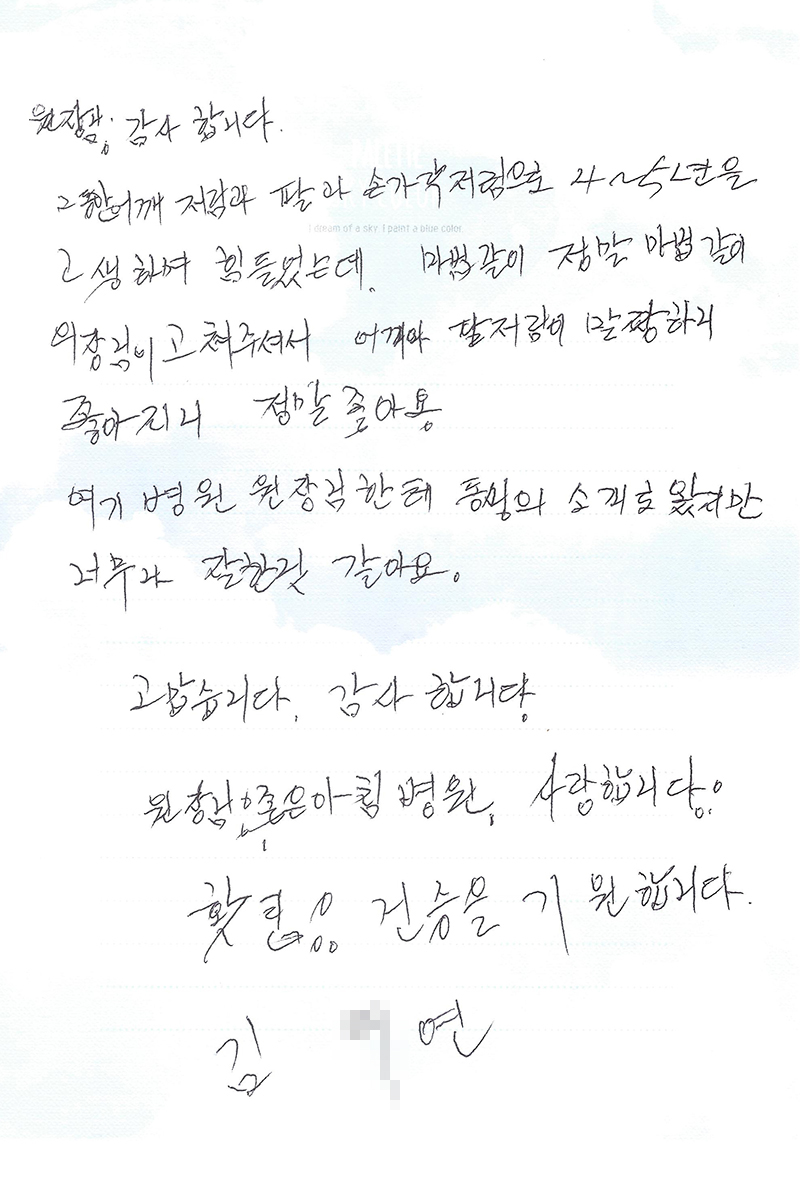 원장님, 감사 합니다.
I dream of a sky. I paint a blue color.
어깨 저림과 팔과 손가락저림으로 4~5년을
고생하며 힘들었는데. 마법같이 정말 마법같이
원장님이 고쳐주셔서 어깨와 팔저림이 말짱하리
좋아지니 정말 좋아용
여기 병원 원장님한테 동생의 소개로 왔지만
너무나 잘한것 같아요.
고맙습니다. 감사 합니다.
원장님, 좋은아침 병원, 사랑합니다.
건승을 기원합니다.
김 연